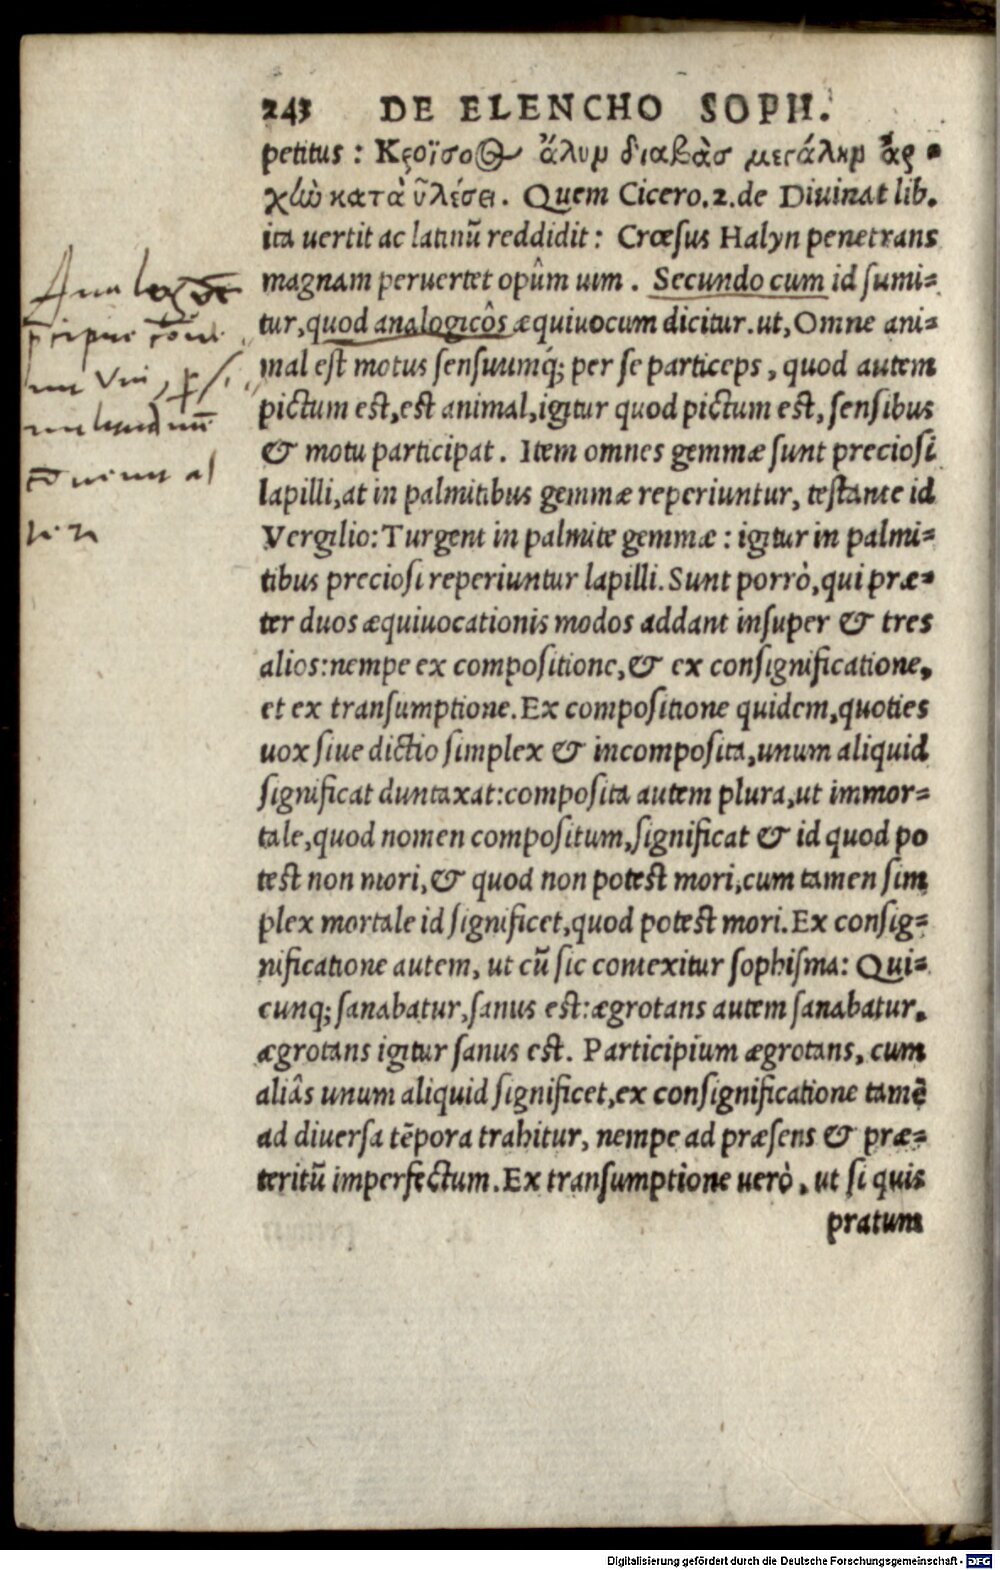 243 DE ELENCHO SOPH.
petitus: Κροῖσος ἅλυν διαβὰς μεγάλην ἀρ-
χὼ καταῦλέσει. Quem Cicero.2.de Diuinat lib.
ita uertit ac latinū reddidit: Crœsus Halyn penetrans
magnam peruertet opûm uim. Secundo cum id sumi=
tur,quod analogicôs æquiuocum dicitur.ut,Omne ani=
mal est motus sensuumq; per se particeps, quod autem
pictum est,est animal,igitur quod pictum est, sensibus
& motu participat. Item omnes gemmæ sunt preciosi
lapilli,at in palmitibus gemmæ reperiuntur, testante id
Vergilio:Turgent in palmite gemmæ: igitur in palmi=
tibus preciosi reperiuntur lapilli.Sunt porrò,qui præ=
ter duos æquiuocationis modos addant insuper & tres
alios:nempe ex compositione,& ex consignificatione,
et ex transumptione.Ex compositione quidem,quoties
uox siue dictio simplex & incomposita,unum aliquid
significat duntaxat:composita autem plura,ut immor=
tale,quod nomen compositum,significat & id quod po
test non mori,& quod non potest mori,cum tamen sim
plex mortale id significet,quod potest mori.Ex consig=
nificatione autem, ut cū sic contexitur sophisma: Qui=
cunq; sanabatur,sanus est:ægrotans autem sanabatur.
ægrotans igitur sanus est. Participium ægrotans, cum
aliâs unum aliquid significet,ex consignificatione tamē
ad diuersa tēpora trahitur, nempe ad præsens & præ=
teritū imperfectum.Ex transumptione uerò, ut si quis
pratum
Digitalisierung gefördert durch die Deutsche Forschungsgemeinschaft - DFG